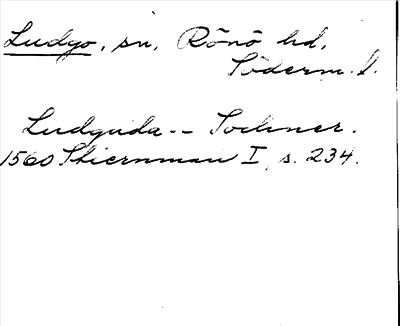 Ludgo, sn, Rönö hd,
Söderm. l.
Ludguda-- Sochner.
1560 Stiernman I, s. 234.